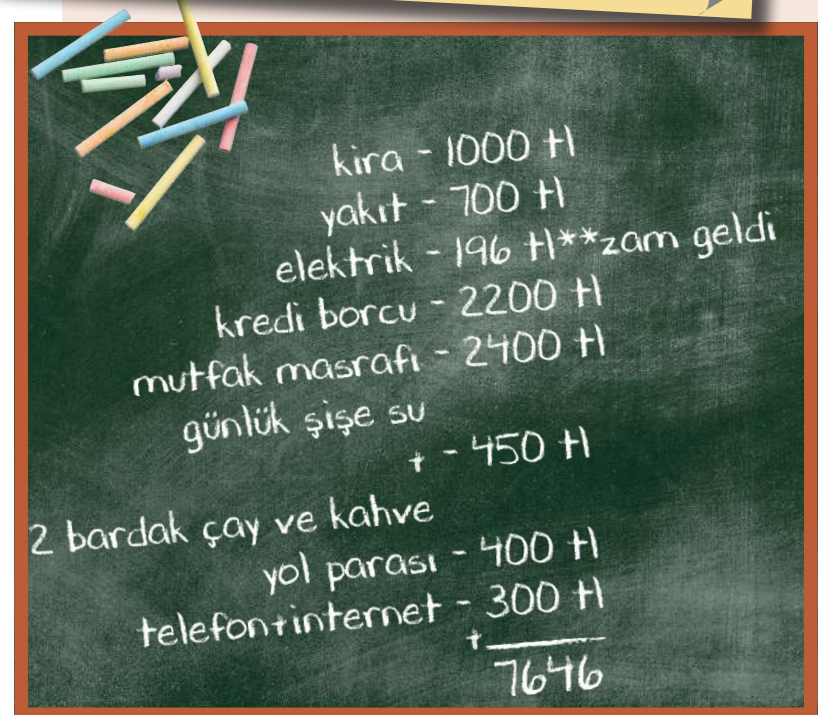 kira - 1000 tl
yakıt - 700 tl
elektrik - 196 tl**zam geldi
kredi borcu - 2200 tl
mutfak masrafı - 2400 tl
günlük şişe su
+ - 450 tl
2 bardak çay ve kahve
yol parası - 400 tl
telefon+internet - 300 tl
+
7646